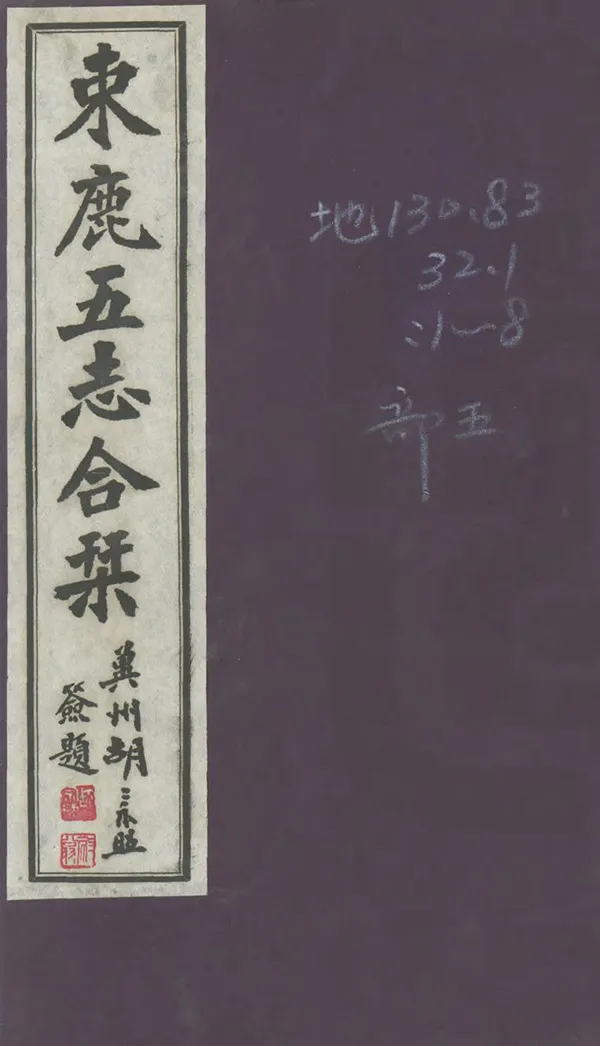 束鹿五志合栞
冀州胡宗照
簽題
地130.83
32.1
:1~8
部五